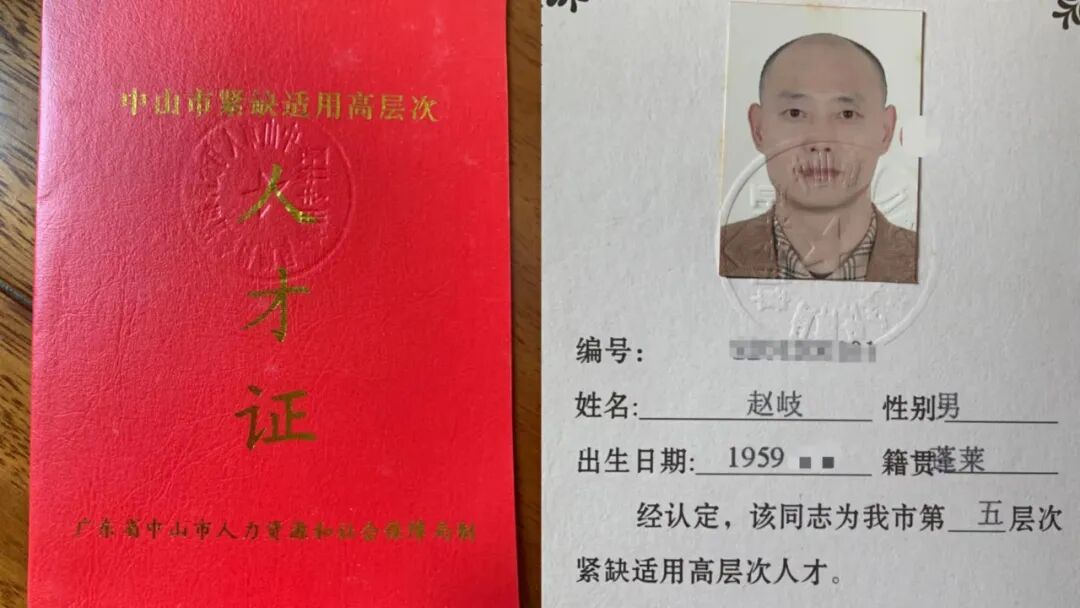 中山市紧缺适用高层次
人
才
证
广东省中山市人力资源和社会保障局制
编号:
姓名: 赵岐 性别男
出生日期: 1959 籍贯蓬莱
经认定，该同志为我市第 五 层次
紧缺适用高层次人才。